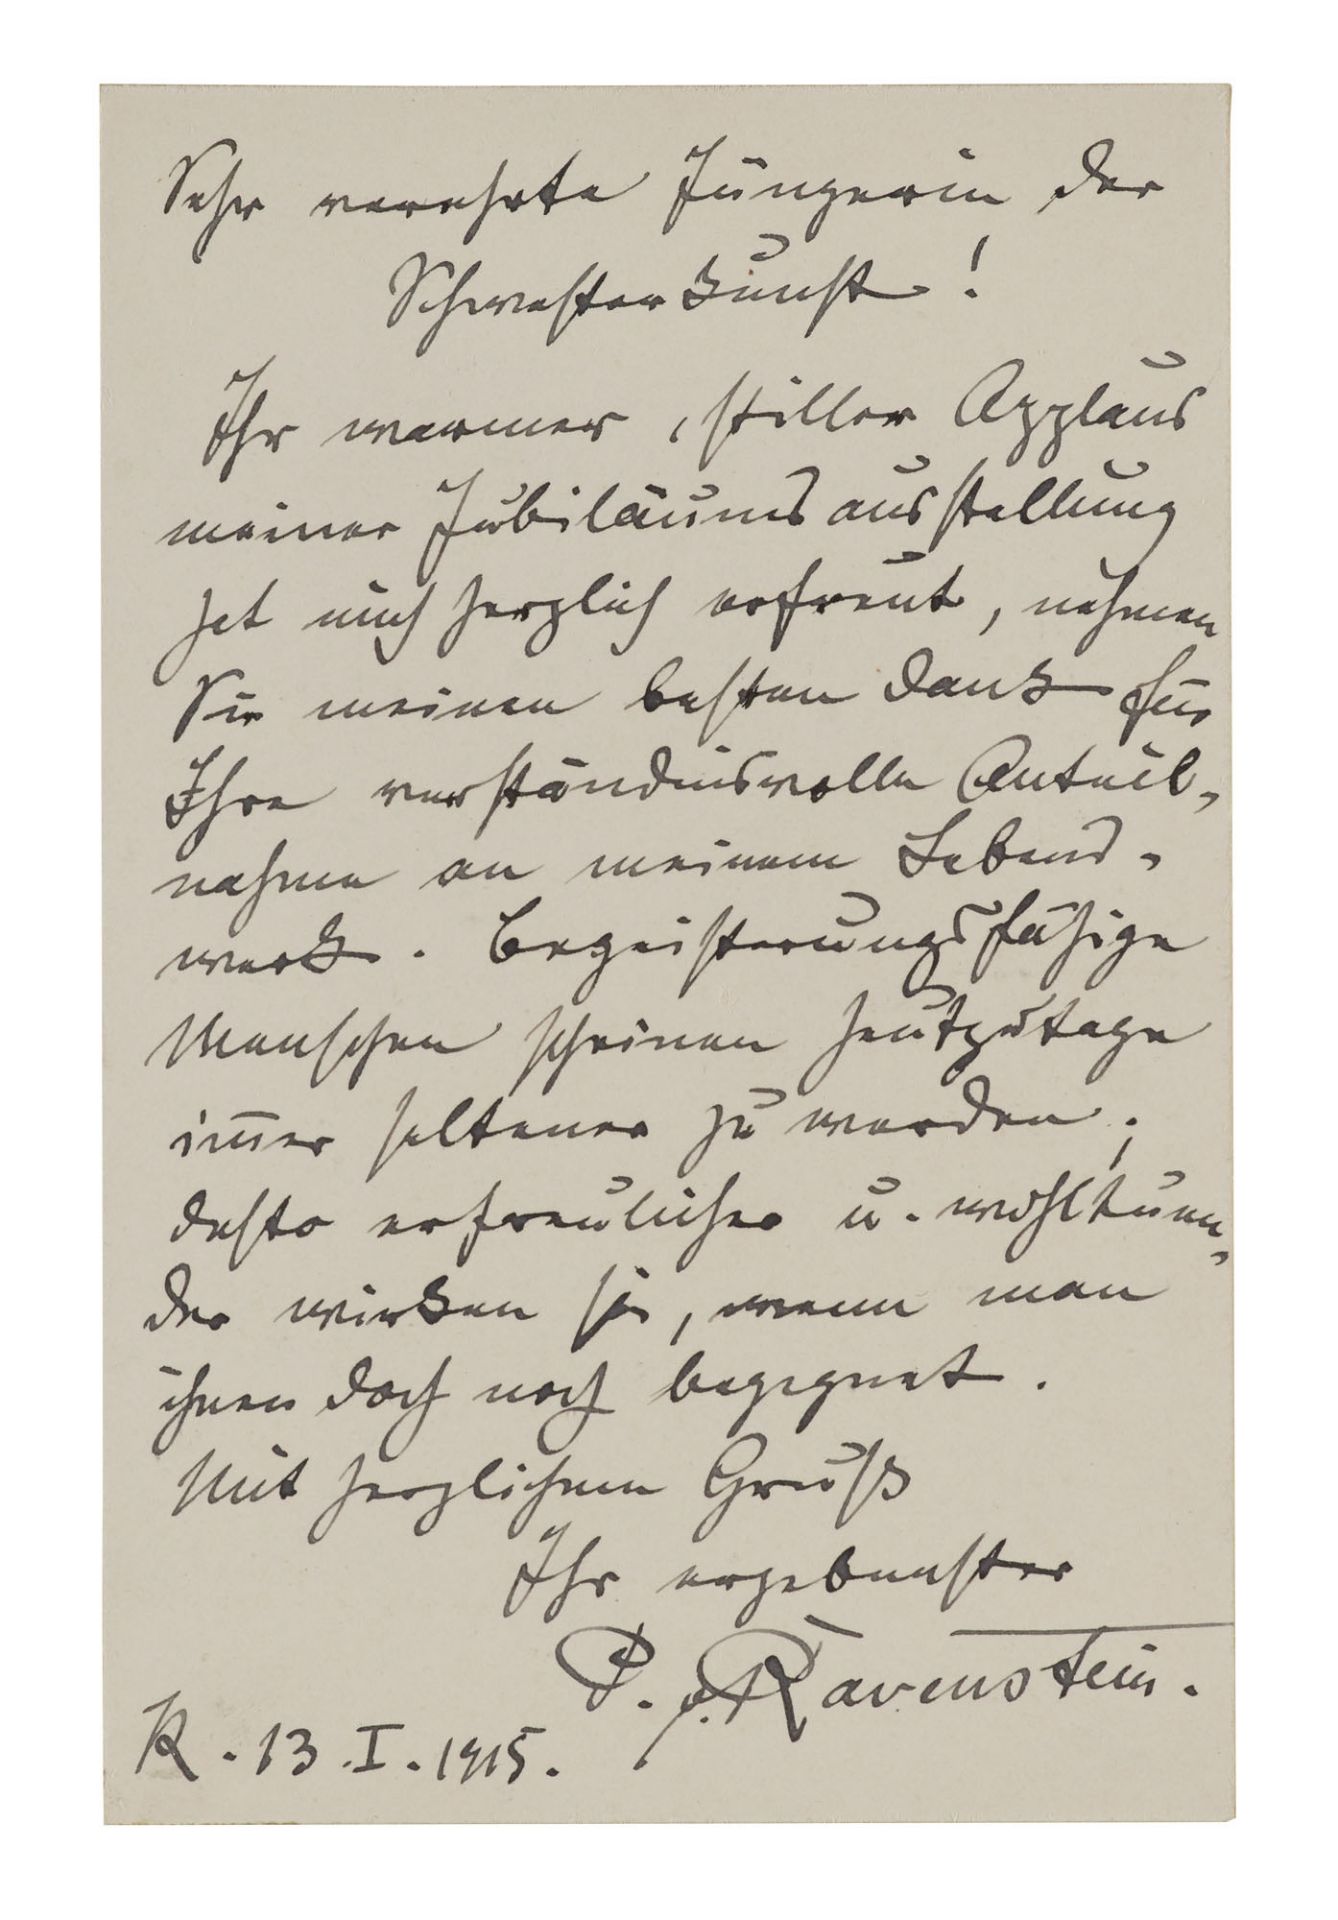 Sehr verehrte Jüngerin der
Schwesterkunst!
Ihr warmer, stiller Applaus
meiner Jubiläumsausstellung
hat mich herzlich erfreut, nehmen
Sie meinen besten Dank für
Ihre verständnisvolle Anteil-
nahme an meinem Lebens-
werk. Begeisterungsfähige
Menschen scheinen heutzutage
im̅er seltener zu werden;
desto erfreulicher u. wohltuen-
der wirken sie, wenn man
ihnen doch noch begegnet.
Mit herzlichem Gruß
Ihr ergebenster
P. v. Ravenstein.
K. 13. I. 1915.